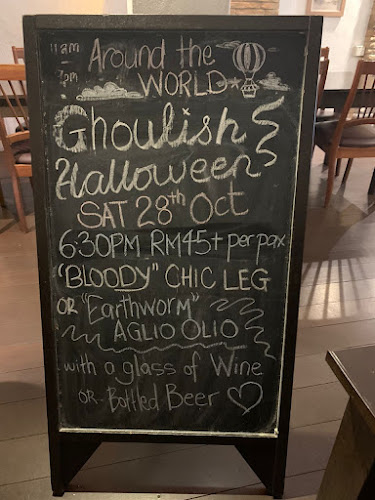 11am
-
7pm
Around the
WORLD
Ghoulish
Halloween
SAT 28th Oct
6:30PM RM45+ per pax
"BLOODY" CHIC LEG
OR "Earthworm"
AGLIO OLIO
with a glass of Wine
OR Bottled Beer